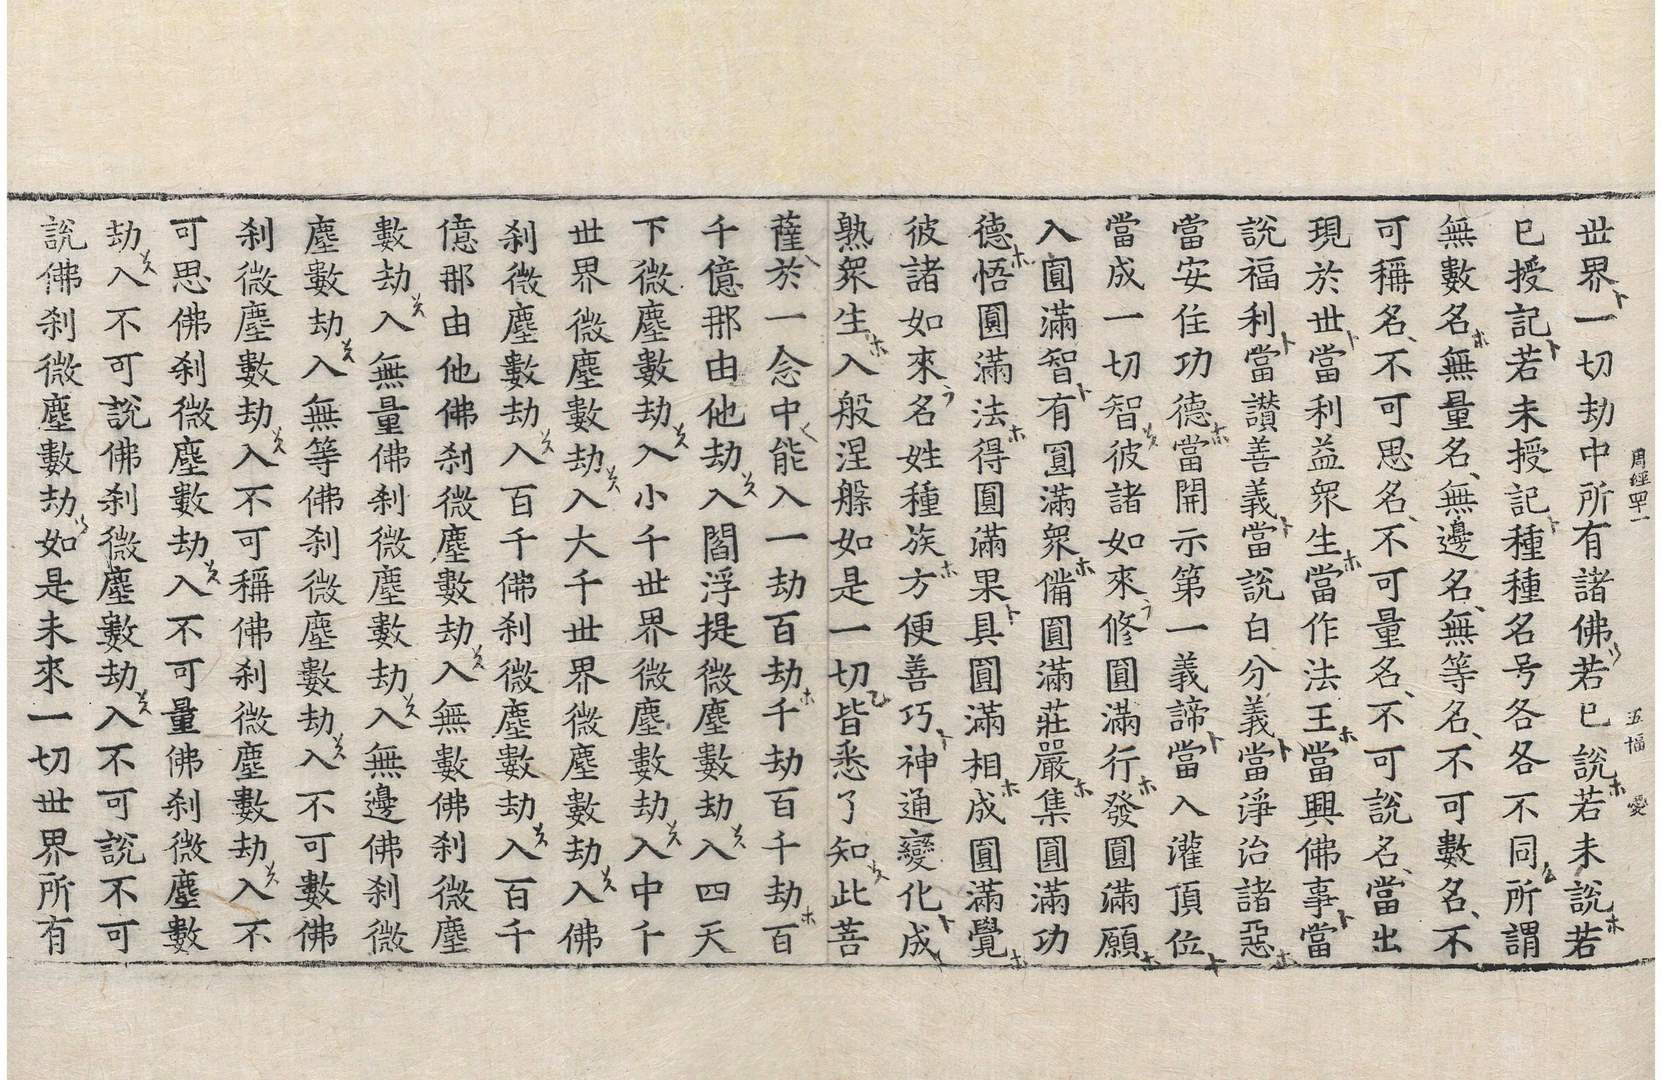 周經罒一 五幅 愛
世界一切劫中所有諸佛若已說若未說若
已授記若未授記種種名号各各不同所謂
無數名無量名、無邊名、無等名、不可數名、不
可稱名、不可思名、不可量名、不可說名、當出
現於世當利益衆生當作法王當興佛事當
說福利當讚善義當說白分義當淨治諸惡
當安住功德當開示第一義諦當入灌頂位
當成一切智彼諸如來修圓滿行發圓滿願
入圓滿智有圓滿衆備圓滿莊嚴集圓滿功
德悟圓滿法得圓滿果具圓滿相成圓滿覺
彼諸如來名姓種族方便善巧神通變化成
熟衆生入般涅槃如是一切皆悉了知此菩
薩於一念中能入一劫百劫千劫百千劫百
千億那由他劫入閻浮提微塵數劫入四天
下微塵數劫入小千世界微塵數劫入中千
世界微塵數劫入大千世界微塵數劫入佛
刹微塵數劫入百千佛刹微塵數劫入百千
億那由他佛刹微塵數劫入無數佛刹微塵
數劫入無量佛刹微塵數劫入無邊佛刹微
塵數劫入無等佛刹微塵數劫入不可數佛
刹微塵數劫入不可稱佛刹微塵數劫入不
可思佛刹微塵數劫入不可量佛刹微塵數
劫入不可說佛刹微塵數劫入不可說不可
說佛刹微塵數劫如是未來一切世界所有